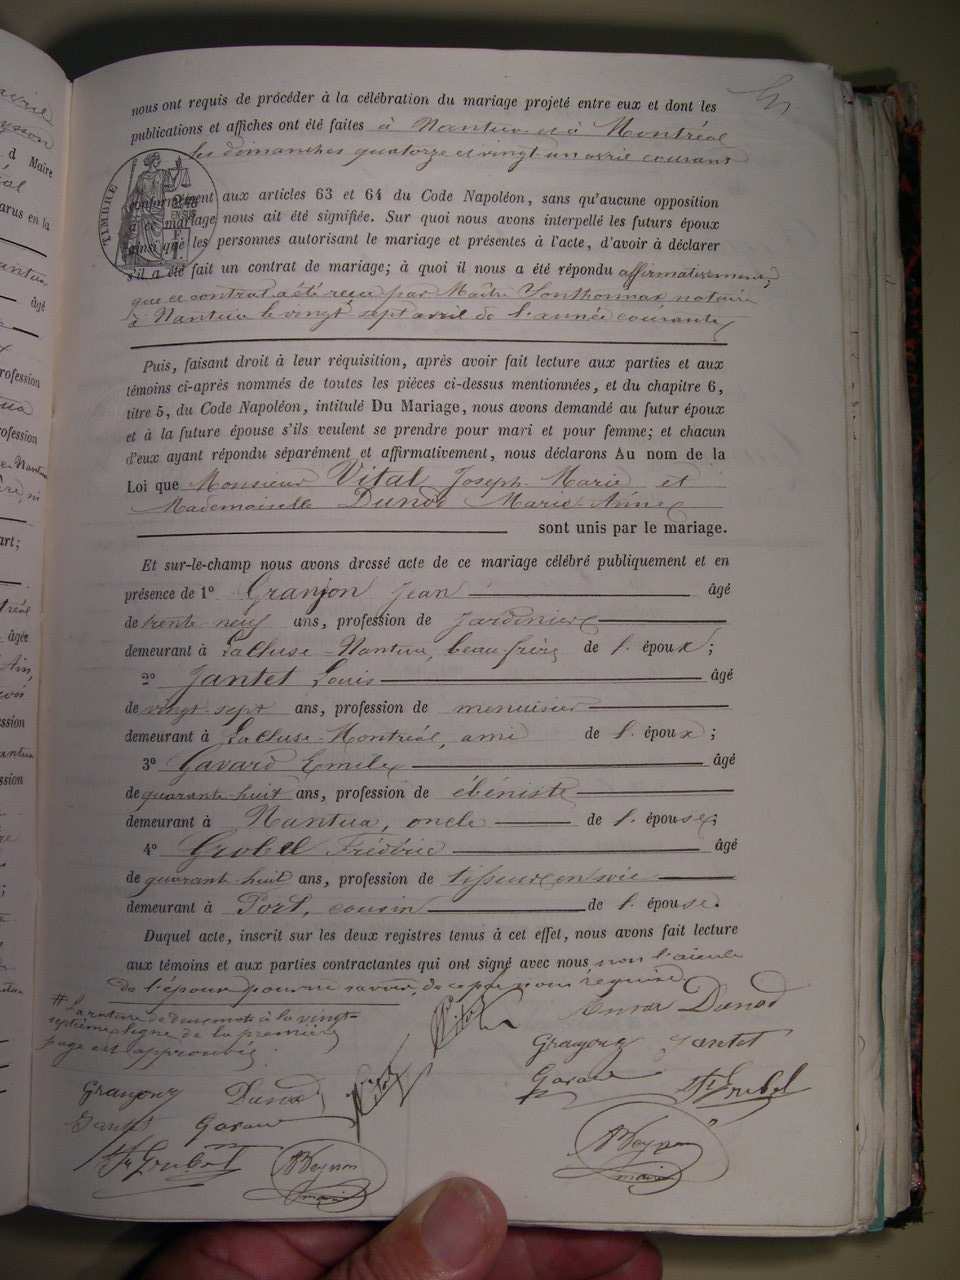 nous ont requis de procéder à la célébration du mariage projeté entre eux et dont les
publications et affiches ont été faites à Nantua et à Montréal
les dimanches quatorze et vingt un avril courant
conformément aux articles 63 et 64 du Code Napoléon, sans qu'aucune opposition
à ce mariage nous ait été signifiée. Sur quoi nous avons interpellé les futurs époux
ainsi que les personnes autorisant le mariage et présentes à l'acte, d'avoir à déclarer
s'il a été fait un contrat de mariage; à quoi il nous a été répondu affirmativement,
que ce contrat a été reçu par Maître Sonthonnax notaire
à Nantua le vingt sept avril de l'année courante
TIMBRE
Puis, faisant droit à leur réquisition, après avoir fait lecture aux parties et aux
témoins ci-après nommés de toutes les pièces ci-dessus mentionnées, et du chapitre 6,
titre 5, du Code Napoléon, intitulé Du Mariage, nous avons demandé au futur époux
et à la future épouse s'ils veulent se prendre pour mari et pour femme; et chacun
d'eux ayant répondu séparément et affirmativement, nous déclarons Au nom de la
Loi que Monsieur Vital Joseph-Marie et
Mademoiselle Dunod Marie-Anne
sont unis par le mariage.
Et sur-le-champ nous avons dressé acte de ce mariage célébré publiquement et en
présence de 1° Granjon Jean âgé
de trente neuf ans, profession de Jardinier
demeurant à Lacluse-Nantua, beau frère de l'époux;
2° Jantet Louis âgé
de vingt-sept ans, profession de menuisier
demeurant à Lacluse-Montréal, ami de l'époux;
3° Gavard Emile âgé
de quarante huit ans, profession de ébéniste
demeurant à Nantua, oncle de l'épouse;
4° Grobel Frédéric âgé
de quarant-huit ans, profession de tisseur en soie
demeurant à Port, cousin de l'épouse.
Duquel acte, inscrit sur les deux registres tenus à cet effet, nous avons fait lecture
aux témoins et aux parties contractantes qui ont signé avec nous, non l'aieule
de l'époux pour ne savoir, de ce par nous requise
# La rature de deux mots à la vingt-
septième ligne de la première
page est approuvée.
Vital
Anna Dunod
Grangonz Jantet
Gavard fr Grobel
Grangonz Dunod
Jantet Gavard
fr Grobel
Reynon
maire
Reynon
maire